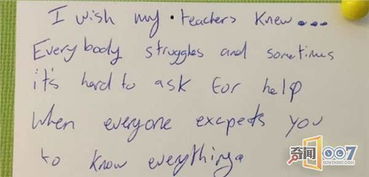 I wish my teachers knew...
Everybody struggles and sometimes
it's hard to ask for help
when everyone excpects you
to know everything.
奇闻007